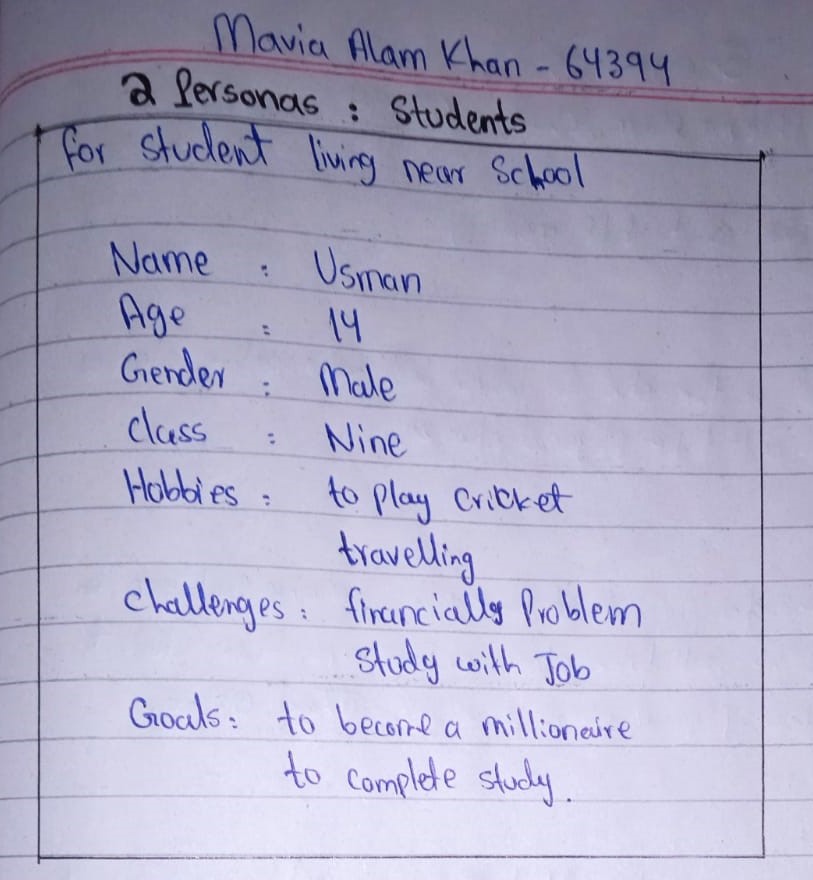 Mavia Alam Khan - 64394
2 Personas : Students
for student living near School
Name : Usman
Age : 14
Gender : Male
Class : Nine
Hobbies : to play Cricket
travelling
Challenges : financially Problem
Study with Job
Goals : to become a millionaire
to complete study.